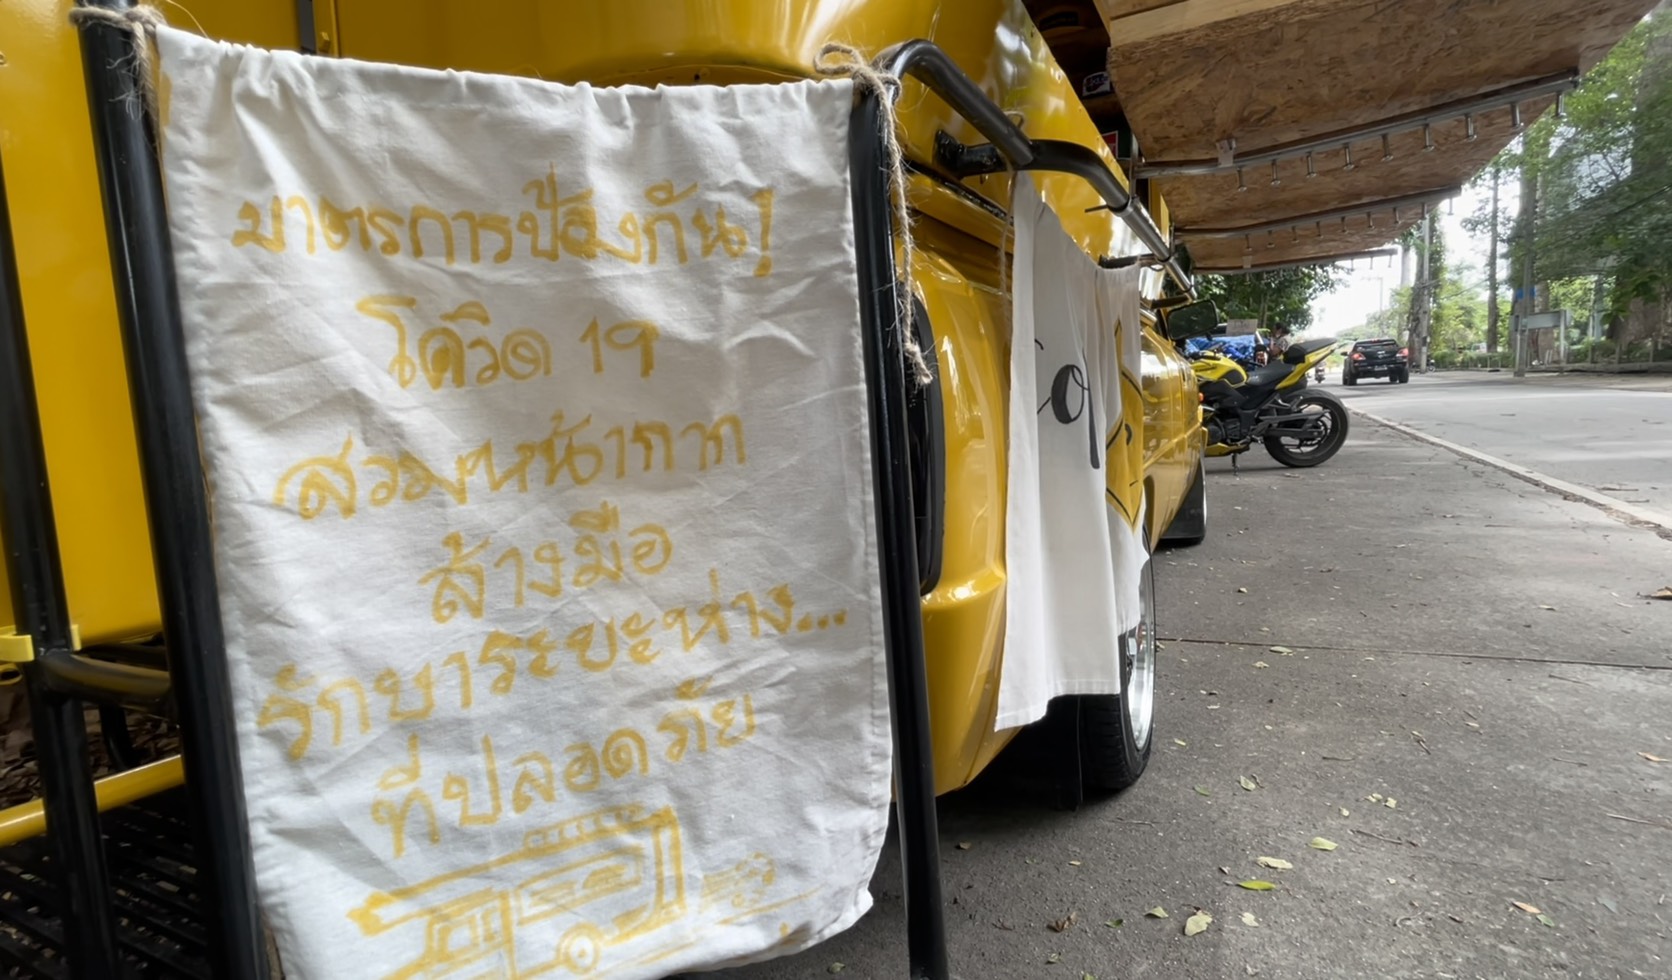 มาตรการป้องกัน!
โควิด 19
สวมหน้ากาก
ล้างมือ
รักษาระยะห่าง...
ที่ปลอดภัย